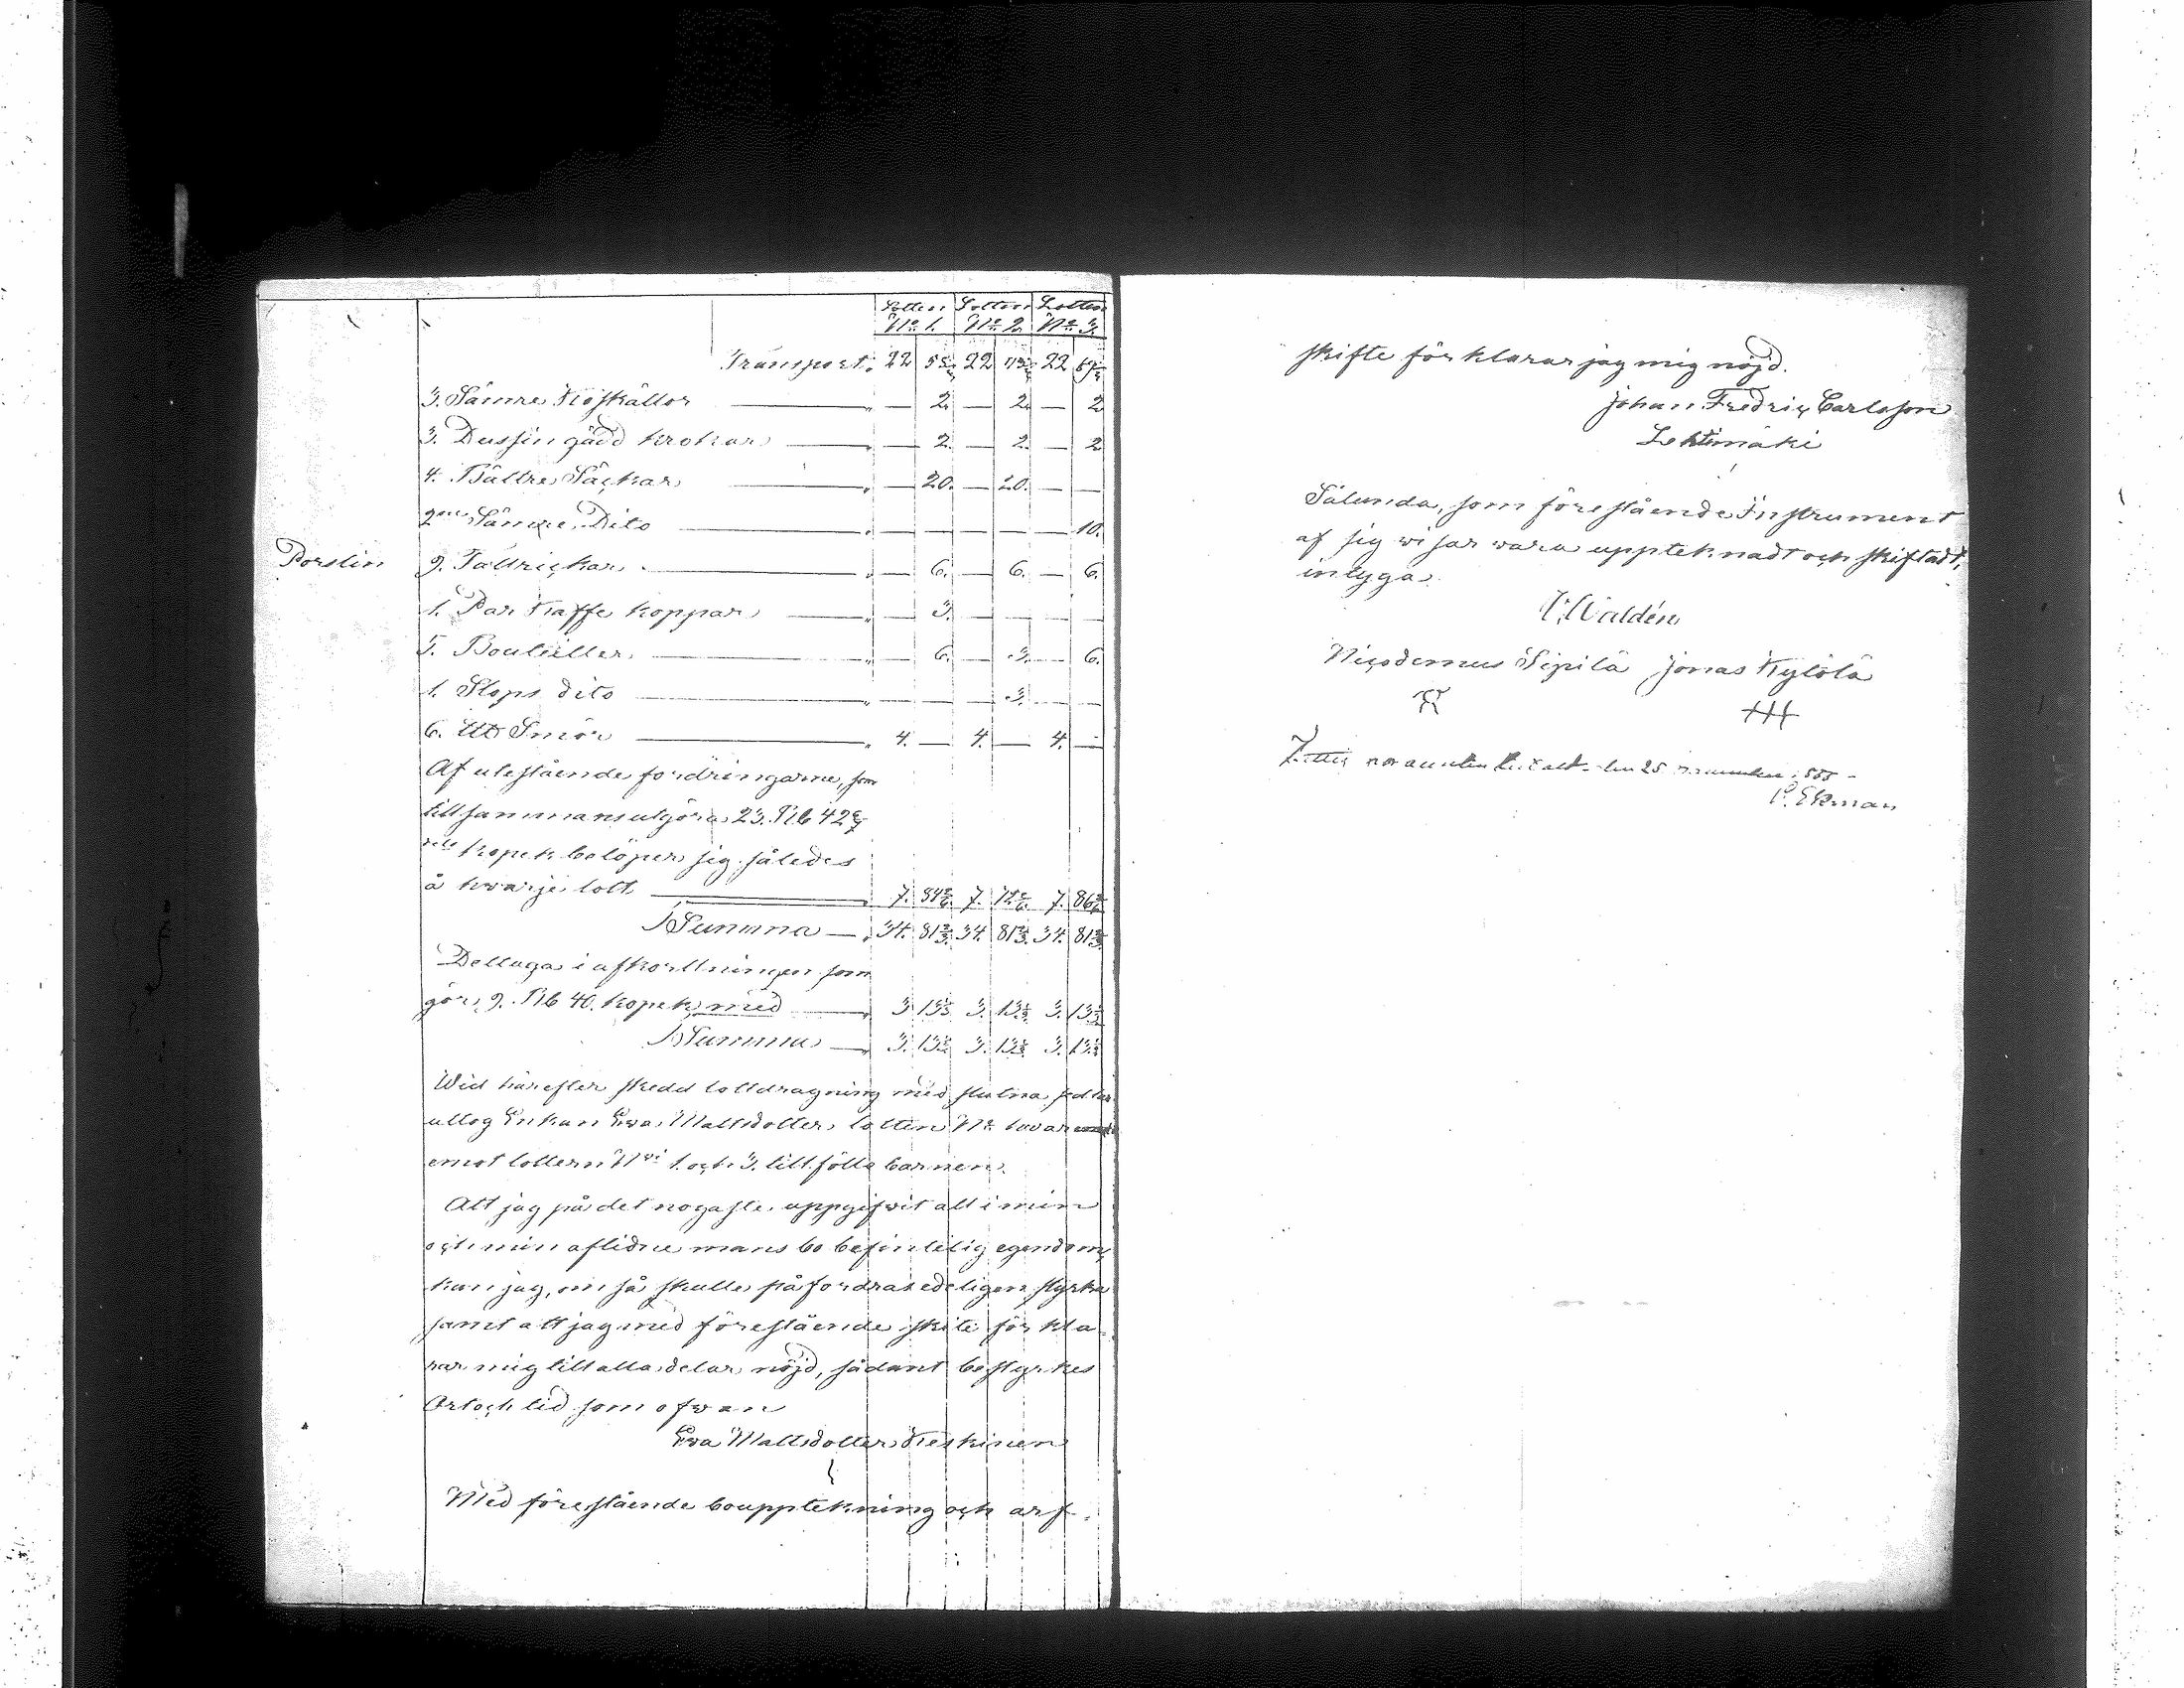 Lotten Lotten Lotten
No 1. No 2. No 3.
Transport: 22 55 22 22
3. Sämre Koskällor " — 2. — 2. — 2
3. Dussin gädd krokar " — 2. — 2. — 2
4. Bättre Säckar " — 20. — 20. — —
2ne Sämre Dito " — — — — — 10.
Porslin 9. Tallrickar " — 6. — 6. — 6.
1. Par Kaffe koppar " — 3. — — — —
5. Bouteiller " — 6. — 3. — 6.
1. Stops dito " — — — 3. — —
6. Smör " 4. — 4. — 4. —
Af utestående fordringarne, som
tillsammans utgöra 23. Rb 42
kopek belöper sig således
å hwarje lott " 7. 7. 7.
Summa — 34. 81 2/3. 34. 81 2/3. 34. 81 2/3.
Dettaga i afkortningen som
gör 9. Rb 40. kopek med " 3. 13 1/3. 3. 13 1/3. 3. 13 1/3
Summa — 3. 13 1/3. 3. 13 1/3. 3. 13 1/3
Wid härefter skedd lottdragning med slutna sedlar
uttog Enkan Ewa Mattsdotter lotten No
emot lottern Nri 1. och 3. tillföllo barnen.
Att jag på det nogaste uppgifwit allt i min
och min aflidne mans bo befintelig egendom,
kan jag, om så skulle påfordras edeligen styrka
samt att jag med förestående skite för kla
rar mig till alla delar nöjd, sådant bestyrkes
Ort och tid som ofwan
Ewa Mattsdotter Keskinen
Med förestående bouppteckning och arf.
skifte för klarar jag mig nöjd.
Johan Fredric Carlsson
Lehtimäki
Sålunda, som förestående Instrument
af sig wisar wara upptecknadt och skiftadt,
intygar
Waldén
Nicodemus Sipilä Jonas Kylölä
den 25
P. Ekman